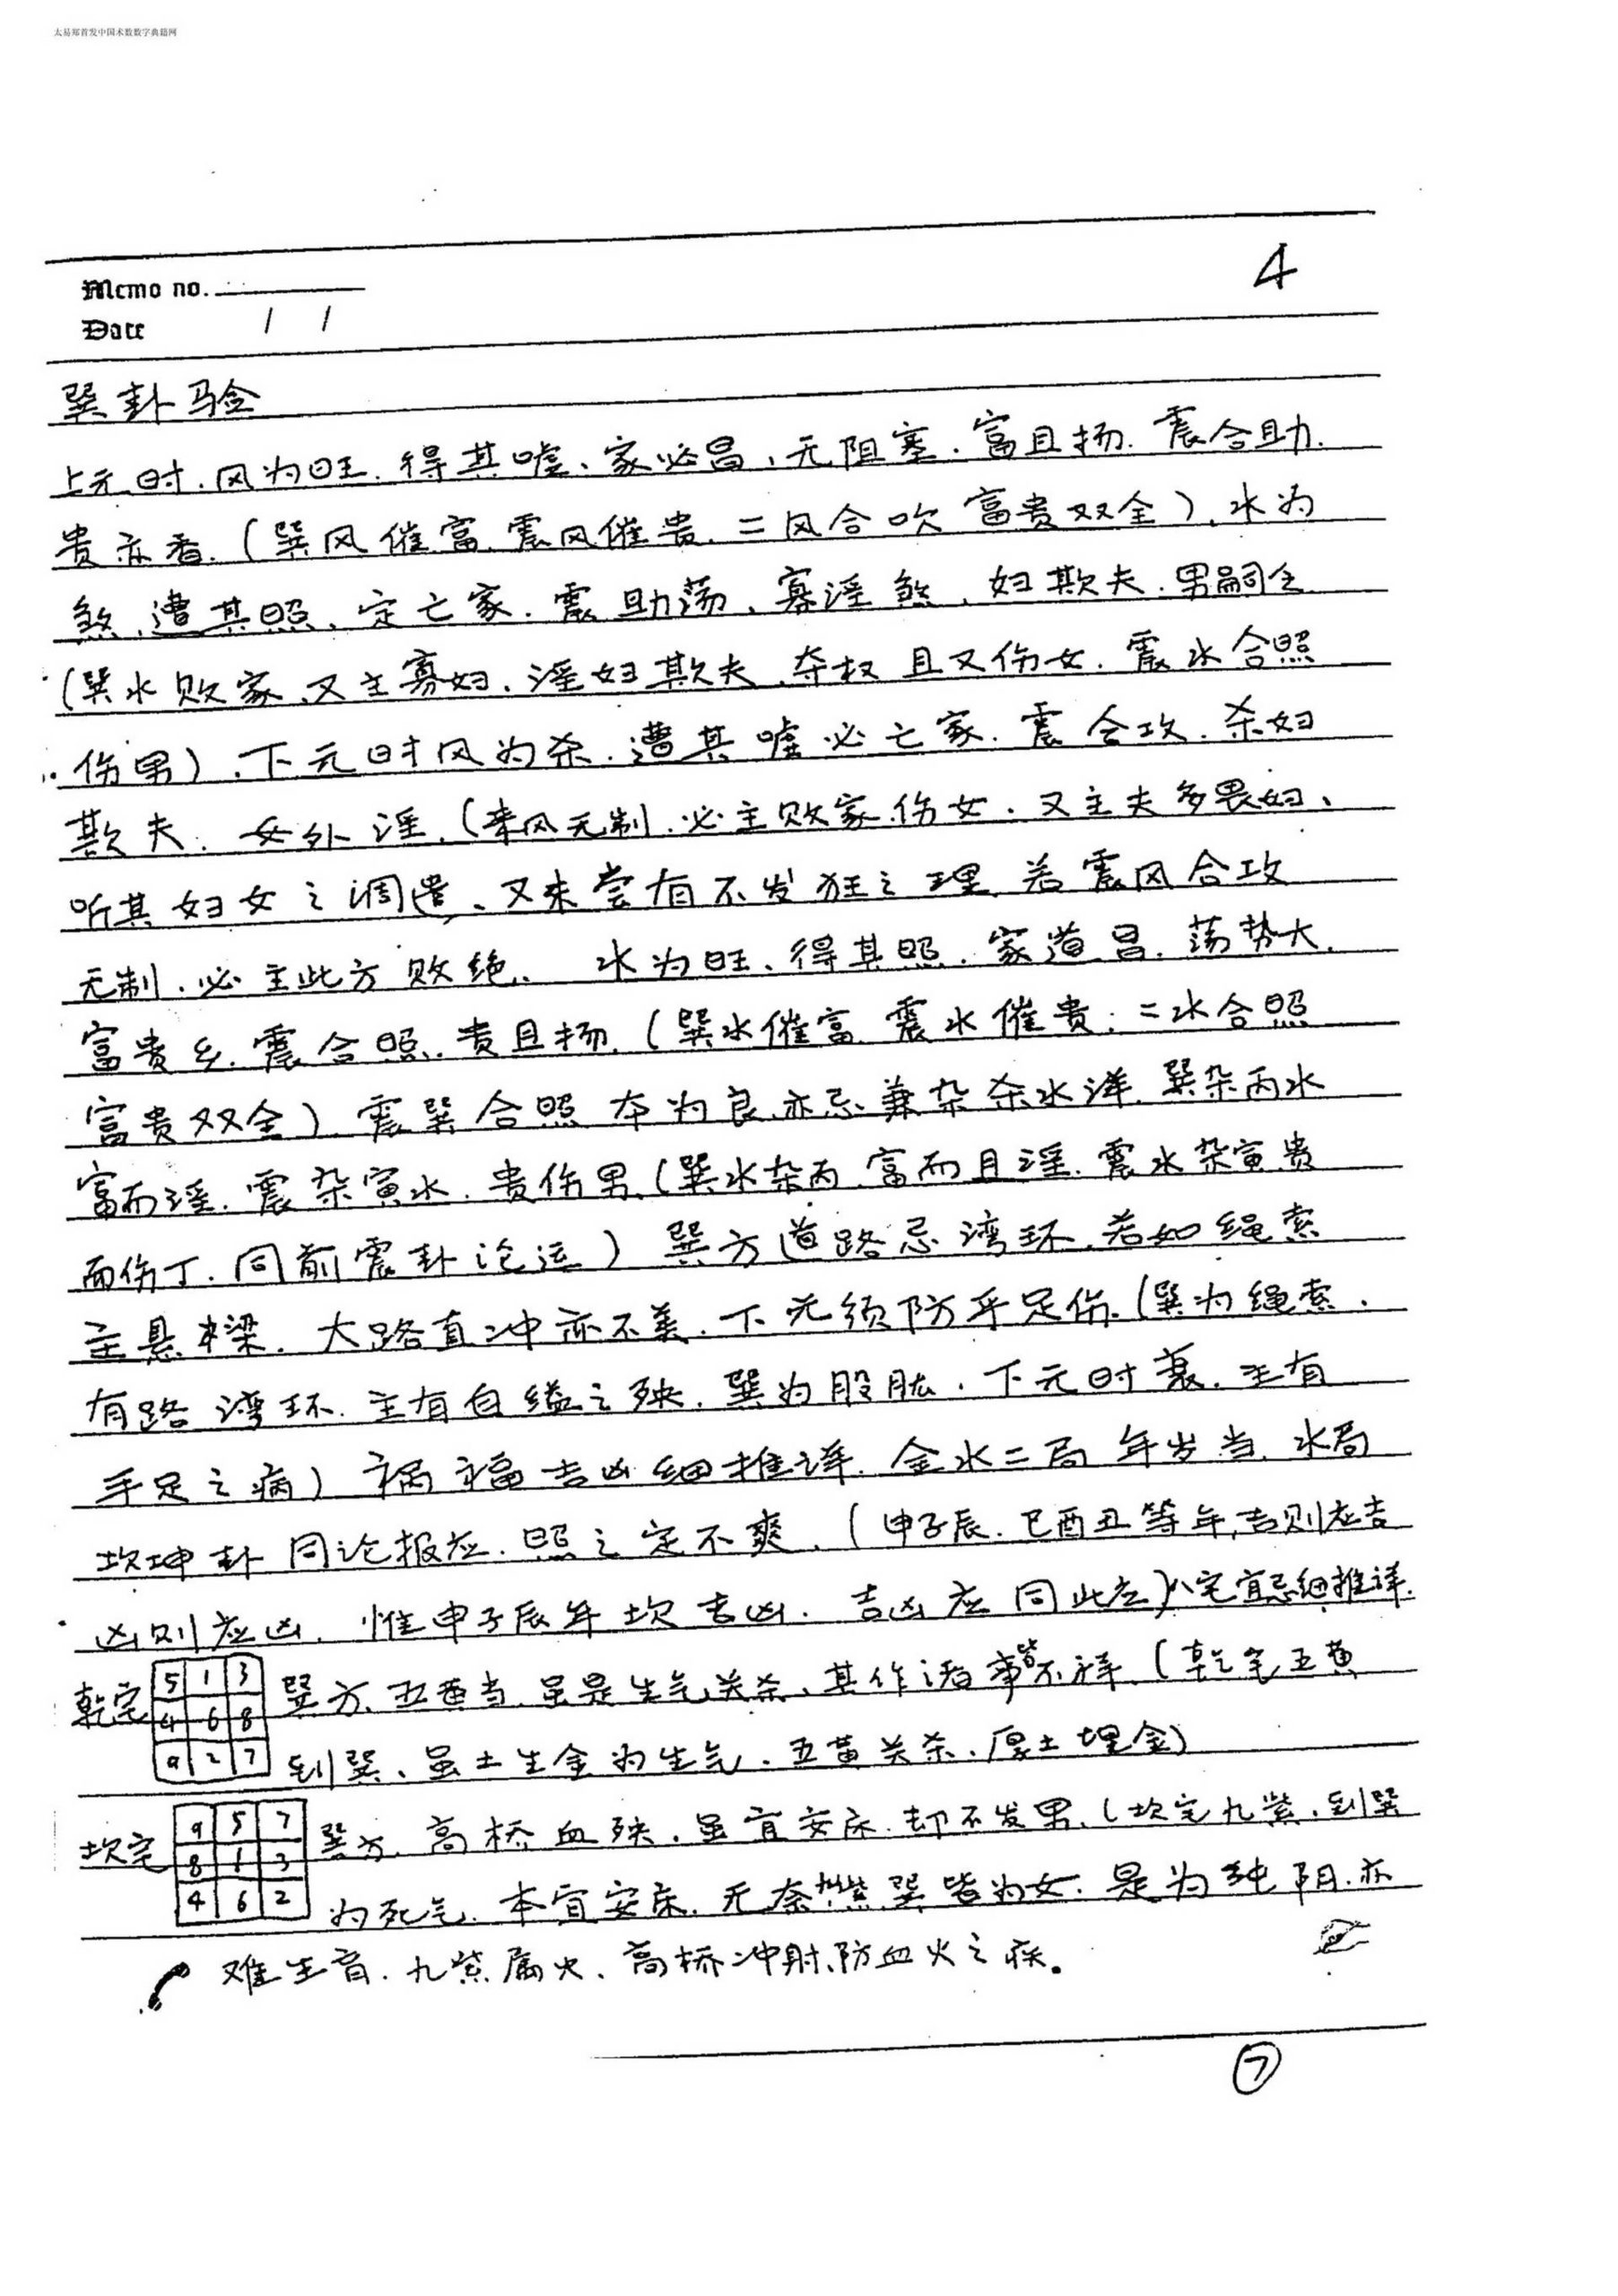 太易郑首发中国术数数字典籍网
4
Memo no.
Date / /
巽卦马佥
上元时.风为旺.得其嘘、家必昌、无阻塞.富且扬.震合助.
贵亦香.(巽风催富.震风催贵.二风合吹富贵双全).水为
煞.遭其照、定亡家.震助荡、寡淫煞、妇欺夫.男嗣
(巽水败家、又主寡妇、淫妇欺夫.夺权且又伤女.震水合照
伤男).下元时风为杀.遭其嘘必亡家.震合攻.杀妇
欺夫.女外淫.(来风无制.必主败家.伤女.又主夫多畏妇、
听其妇女之调遣、又未尝有不发狂之理.若震风合攻
无制.必主此方败绝. 水为旺、得其照.家道昌.荡势大.
富贵乡.震合照.贵且扬.(巽水催富.震水催贵:二水合照
富贵双全).震巽合照本为良.亦忌兼杂杀水洋.巽杂丙水
富而淫.震杂寅水.贵伤男.(巽水杂丙.富而且淫.震水杂寅.贵
而伤丁.同前震卦论运)巽方道路忌湾环.若如绳索
主悬梁.大路直冲亦不美.下元须防手足伤.(巽为绳索.
有路湾环.主有自缢之殃.巽为股肱.下元时衰.主有
手足之病)祸福吉凶细推详.金水二局年岁当.水局
坎坤卦同论报应.照之定不爽.(申子辰.巳酉丑等年,吉则应吉
凶则应凶.惟申子辰年坎吉凶.吉凶应同此应)八宅宜忌细推详.
乾宅
5 1 3
4 6 8
9 2 7
巽方、五黄当.虽是生气关杀、其作诸事皆不祥.(乾宅五黄
到巽、虽土生金为生气.五黄关杀.厚土埋金)
坎宅
9 5 7
8 1 3
4 6 2
巽方、高桥血殃.虽宜安床.却不发男.(坎宅九紫.到巽
为死气.本宜安床.无奈九紫巽皆为女.是为纯阴.亦
难生育.九紫属火、高桥冲射、防血火之疾。
⑦